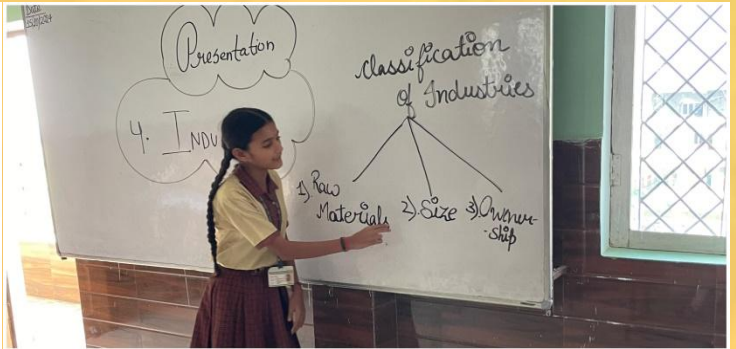 Date
Presentation
4. INDU
Classification
of Industries
1) Raw
Materials
2) Size
3) Owner-
-ship